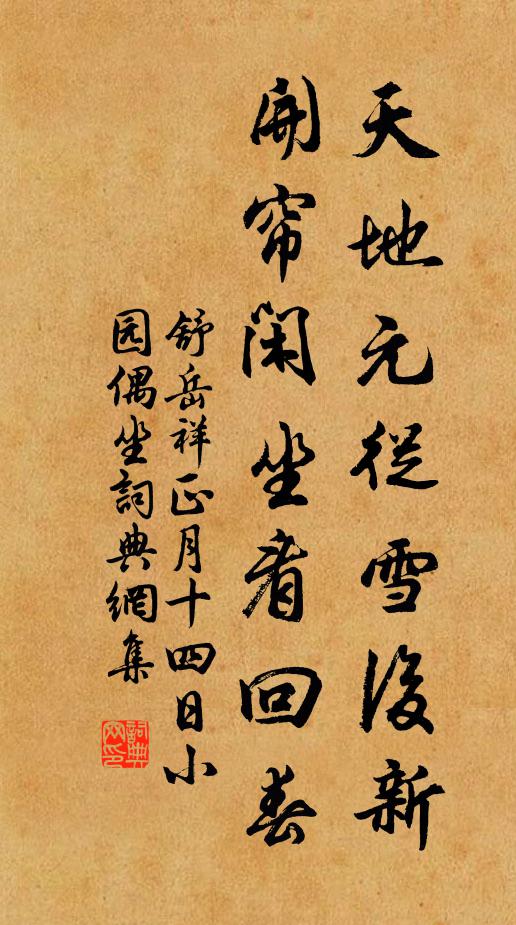 天地元從雪後新
開帘閑坐看回春
舒岳祥正月十四日小
园偶坐詞典網集
詞典網印